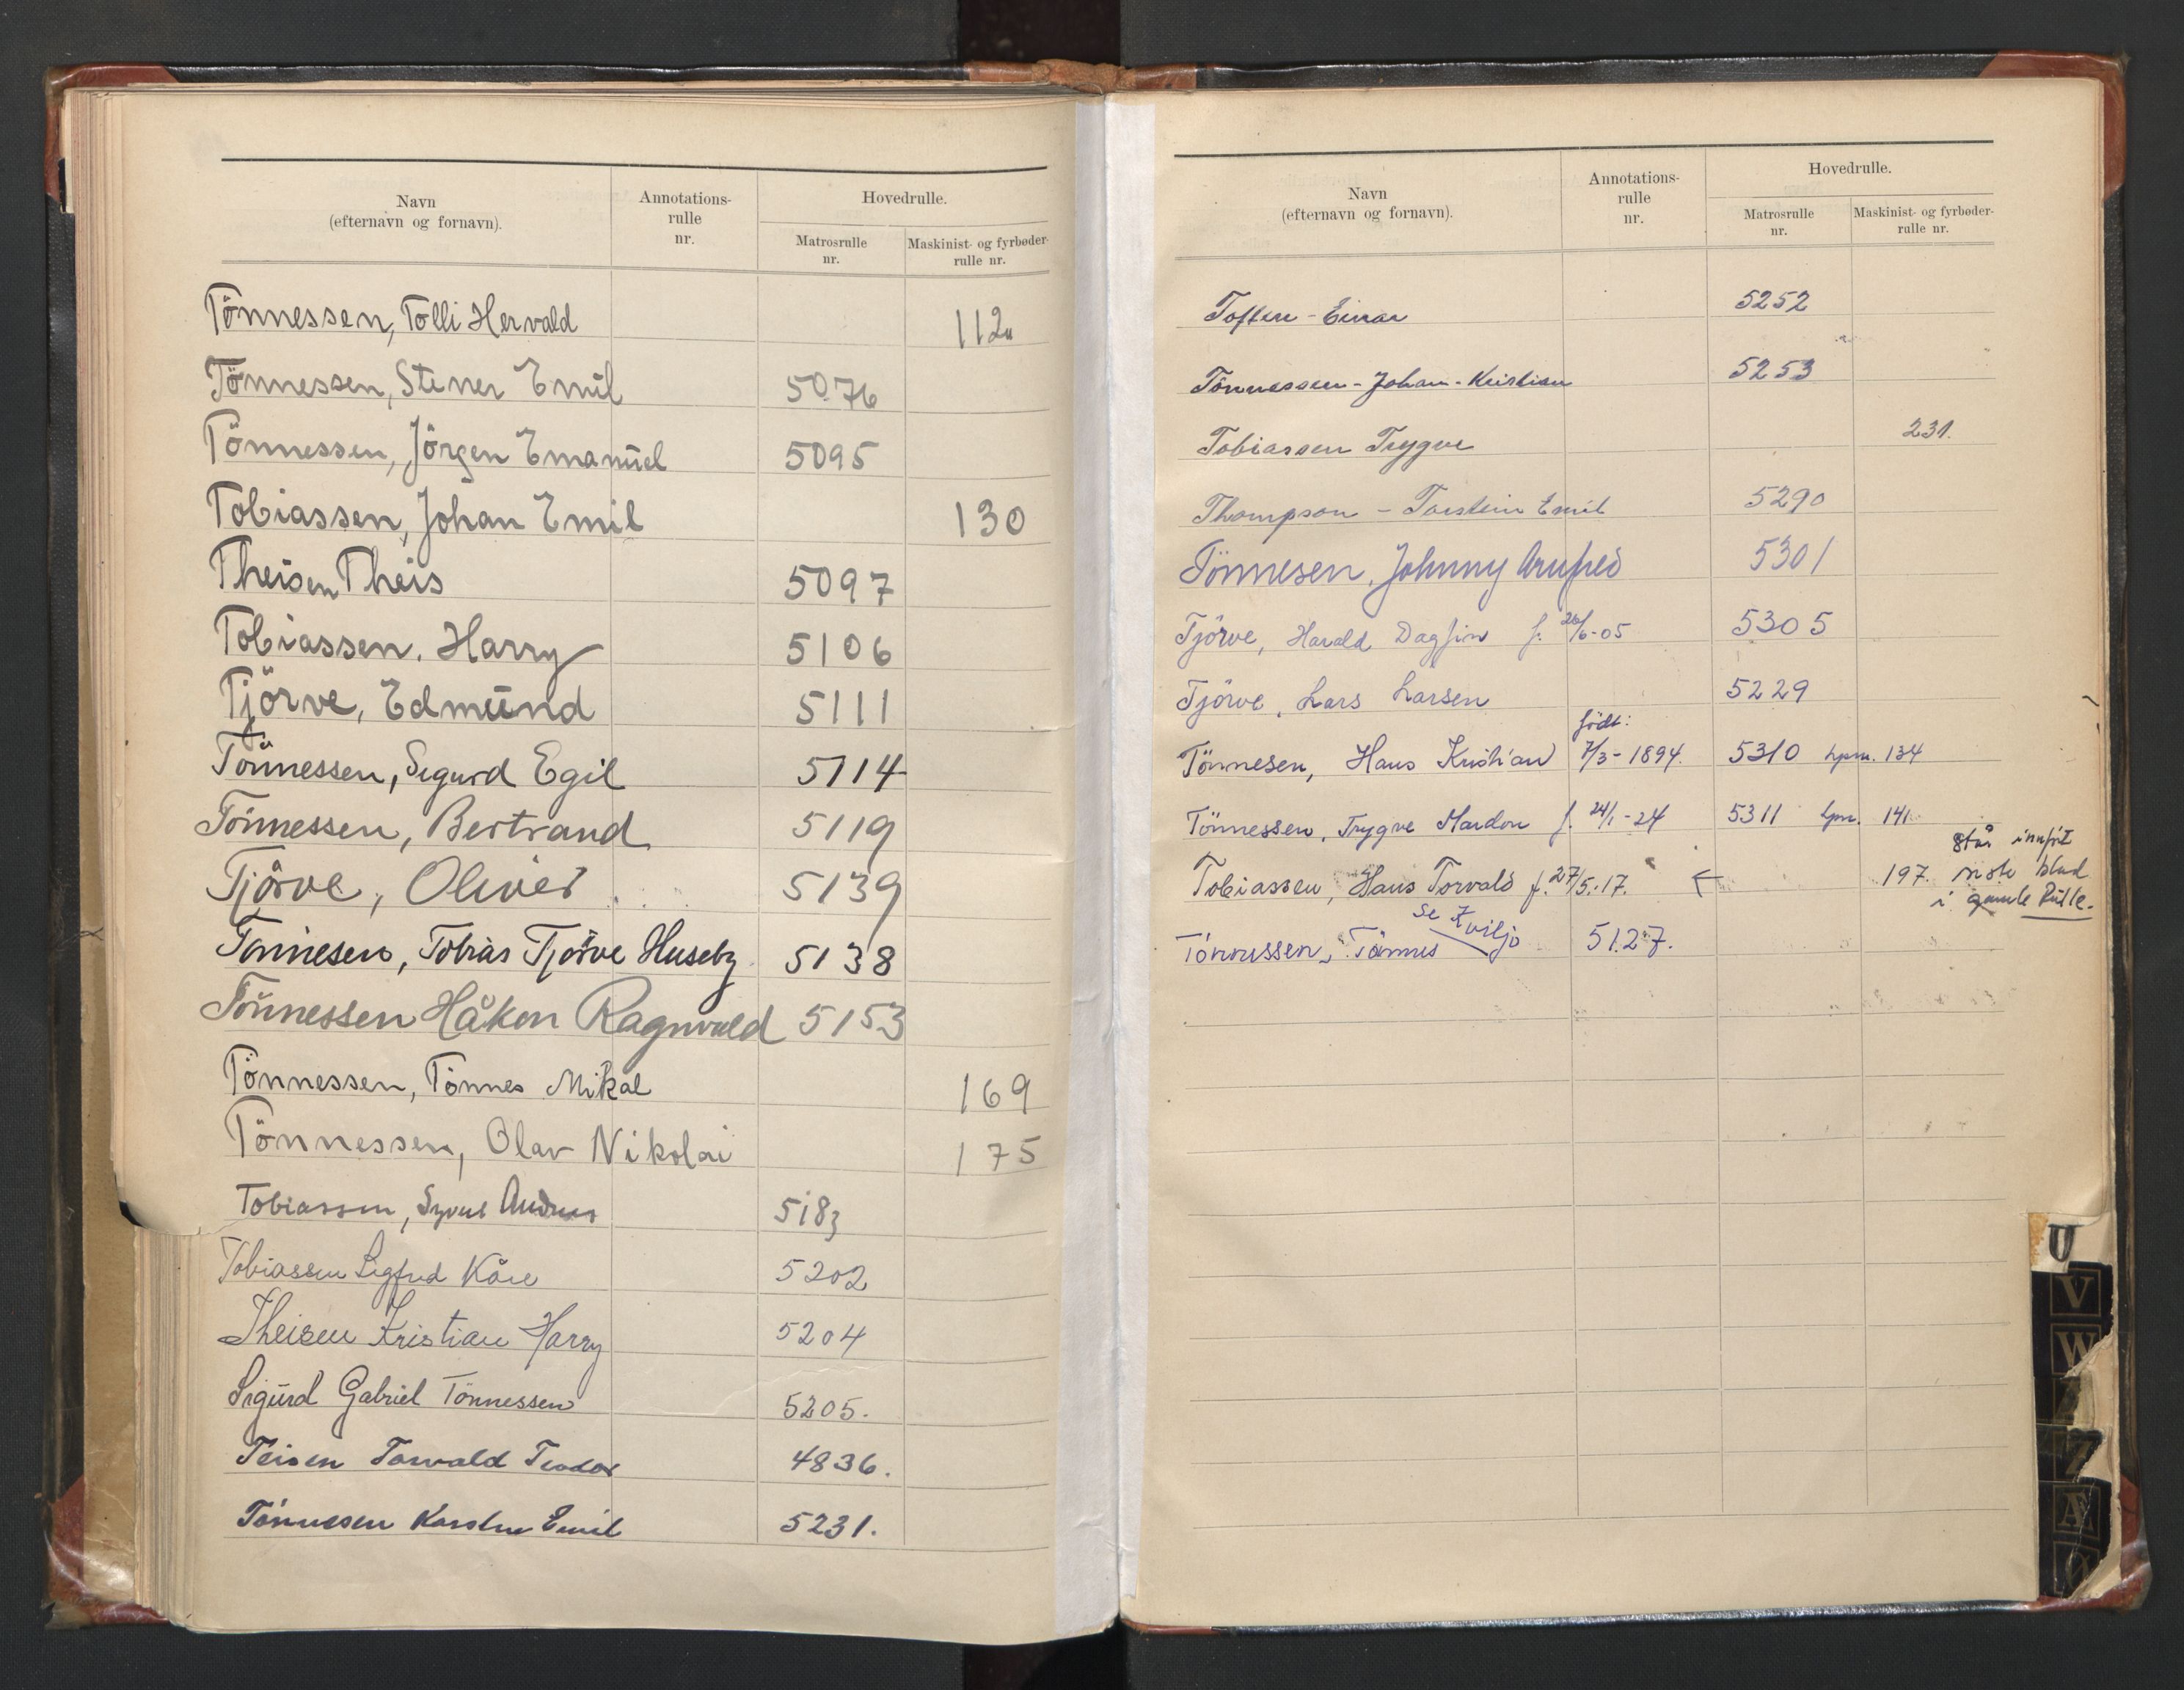 Navn
(efternavn og fornavn).
Annotations-
rulle
nr.
Hovedrulle.
Matrosrulle
nr.
Maskinist- og fyrbøder-
rulle nr.
Tönnessen, Tolli Hervald 112
Tönnessen, Stener Emil 5076
Tönnessen, Jörgen Emanuel 5095
Tobiassen, Johan Emil 130
Theisen Theis 5097
Tobiassen, Harry 5106
Tjörve, Edmund 5111
Tönnessen, Sigurd Egil 5114
Tönnessen, Bertrand 5119
Tjörve, Oliver 5139
Tönnesen, Tobias Tjörve Huseby 5138
Tönnessen Håkon Ragnvald 5153
Tönnessen, Tönnes Mikal 169
Tönnessen, Olav Nikolai 175
Tobiassen, 5183
Tobiassen Sigfred Kåre 5202
Theisen Kristian Harry 5204
Sigurd Gabriel Tönnessen 5205.
Teisen Torvald Teodor 4836.
Tönnesen Karsten Emil 5231.
Navn
(efternavn og fornavn).
Annotations-
rulle
nr.
Hovedrulle.
Matrosrulle
nr.
Maskinist- og fyrbøder-
rulle nr.
Toften - Einar 5252
Tönnessen - Johan - Kristian 5253
Tobiassen Trygve 231.
Thompson - Torstein Emil 5290
Tönnesen, Johnny Arnfred 5301
Tjörve, Harald Dagfin f. 26/6-05 5305
Tjörve, Lars Larsen 5229
født:
Tönnesen, Hans Kristian 7/3-1894. 5310 hpm. 134
Tönnessen, Trygve Mardon f. 24/1-24 5311 hpm. 141.
står innført
Tobiassen, Hans Torvald f. 27/5.-17. ← 197. siste blad
i gamle Rulle.
Se Kviljo
Tönnessen, Tönnes 5127.
U
V
W
Z
Æ
Ø